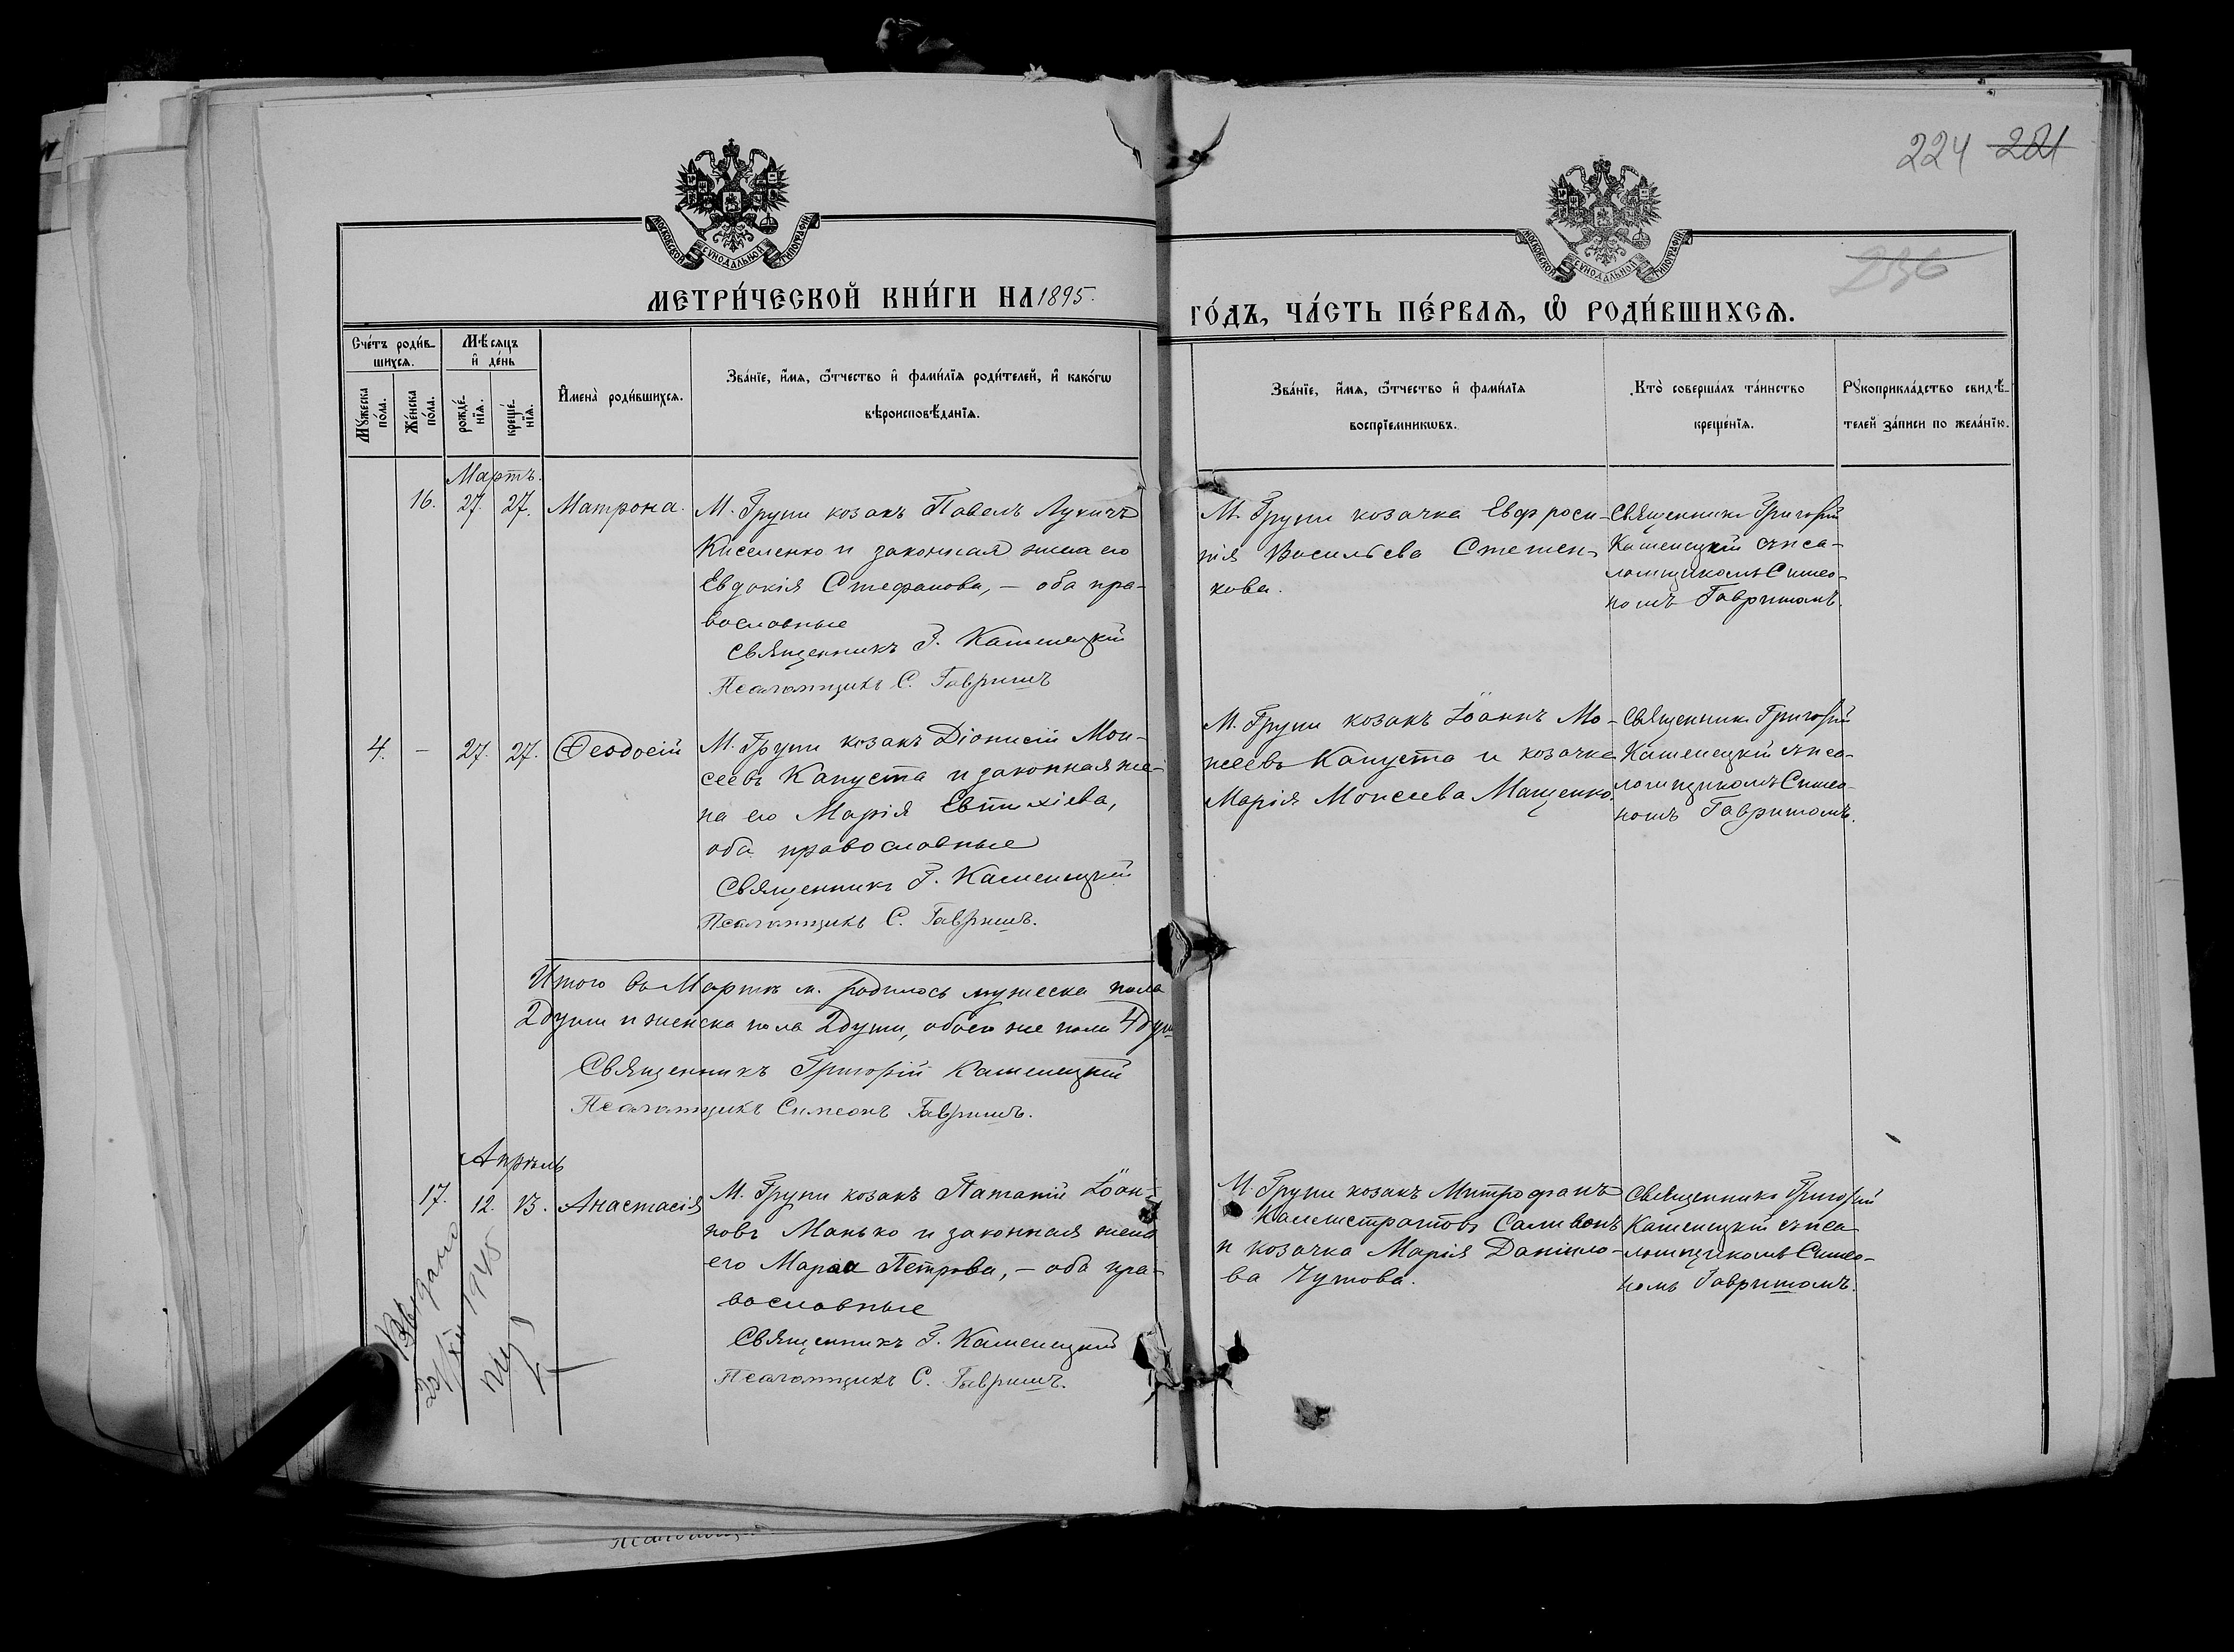 224 221
236
МОСКОВСКОЙ СѴНОДАЛЬНОЙ ТИПОГРАФІИ
МОСКОВСКОЙ СѴНОДАЛЬНОЙ ТИПОГРАФІИ
МЕТРИ́ЧЕСКОЙ КНИ́ГИ НА 1895.
ГО́ДЪ, ЧА́СТЬ ПЕ́РВАѦ, Ѡ҆ РОДИ́ВШИХСѦ.
Сче́тъ роди́в-
шихсѧ.
Мѣ́сѧцъ
и҆ де́нь
Мꙋ́жеска
по́ла.
Же́нска
по́ла.
рожде́-
нїѧ.
креще́-
нїѧ.
И҆мена̀ роди́вшихсѧ.
Зва́нїе, и҆́мѧ, ѻ҆́тчество и҆ фами́лїѧ роди́телей, и҆ како́гѡ
вѣроисповѣ́данїѧ.
Зва́нїе, и҆́мѧ, ѻ҆́тчество и҆ фами́лїѧ
воспрїе́мникѡвъ.
Кто̀ соверша́лъ та́инство
креще́нїѧ.
Рꙋкоприкла́дство свидѣ́-
телей за́писи по жела́нїю.
Мартъ.
16. 27. 27. Матрона.
М. Груни козакъ Павелъ Лукичъ
Киселенко и законная жена его
Евдокія Стефанова, — оба пра-
вославные
Священникъ Г. Каменецкій
Псаломщикъ С. Гавришъ
М. Груни козачка Евфроси-
нія Васильева Степен-
кова.
Священникъ Григорій
Каменецкій съ пса-
ломщикомъ Симео-
номъ Гавришомъ.
4. — 27. 27. Ѳеодосій
М. Груни козакъ Діонисій Мои-
сеевъ Капуста и законная же-
на его Марія Евтихіева,
оба православные
Священникъ Г. Каменецкій
Псаломщикъ С. Гавришъ.
М. Груни козакъ Іоаннъ Мо-
исеевъ Капуста и козачка
Марія Моисеева Мащенко.
Священникъ Григорій
Каменецкій съ пса-
ломщикомъ Симео-
номъ Гавришомъ.
Итого въ Мартѣ м. родилось мужеска пола
2 души и женска пола 2 души, обоего же пола 4 душ
Священникъ Григорій Каменецкій
Псаломщикъ Симеонъ Гавришъ.
Апрѣль
17. 12. 13. Анастасія
М. Груни козакъ Потапій Іоан-
новъ Манько и законная жена
его Марія Петрова, — оба пра-
вославные
Священникъ Г. Каменецкій
Псаломщикъ С. Гавришъ.
М. Груни козакъ Митрофанъ
Каллистратовъ Саливонъ
и козачка Марія Данило-
ва Чутова.
Священникъ Григорій
Каменецкій съ пса
ломщикомъ Симео-
номъ Гавришомъ.
Выдано
1945